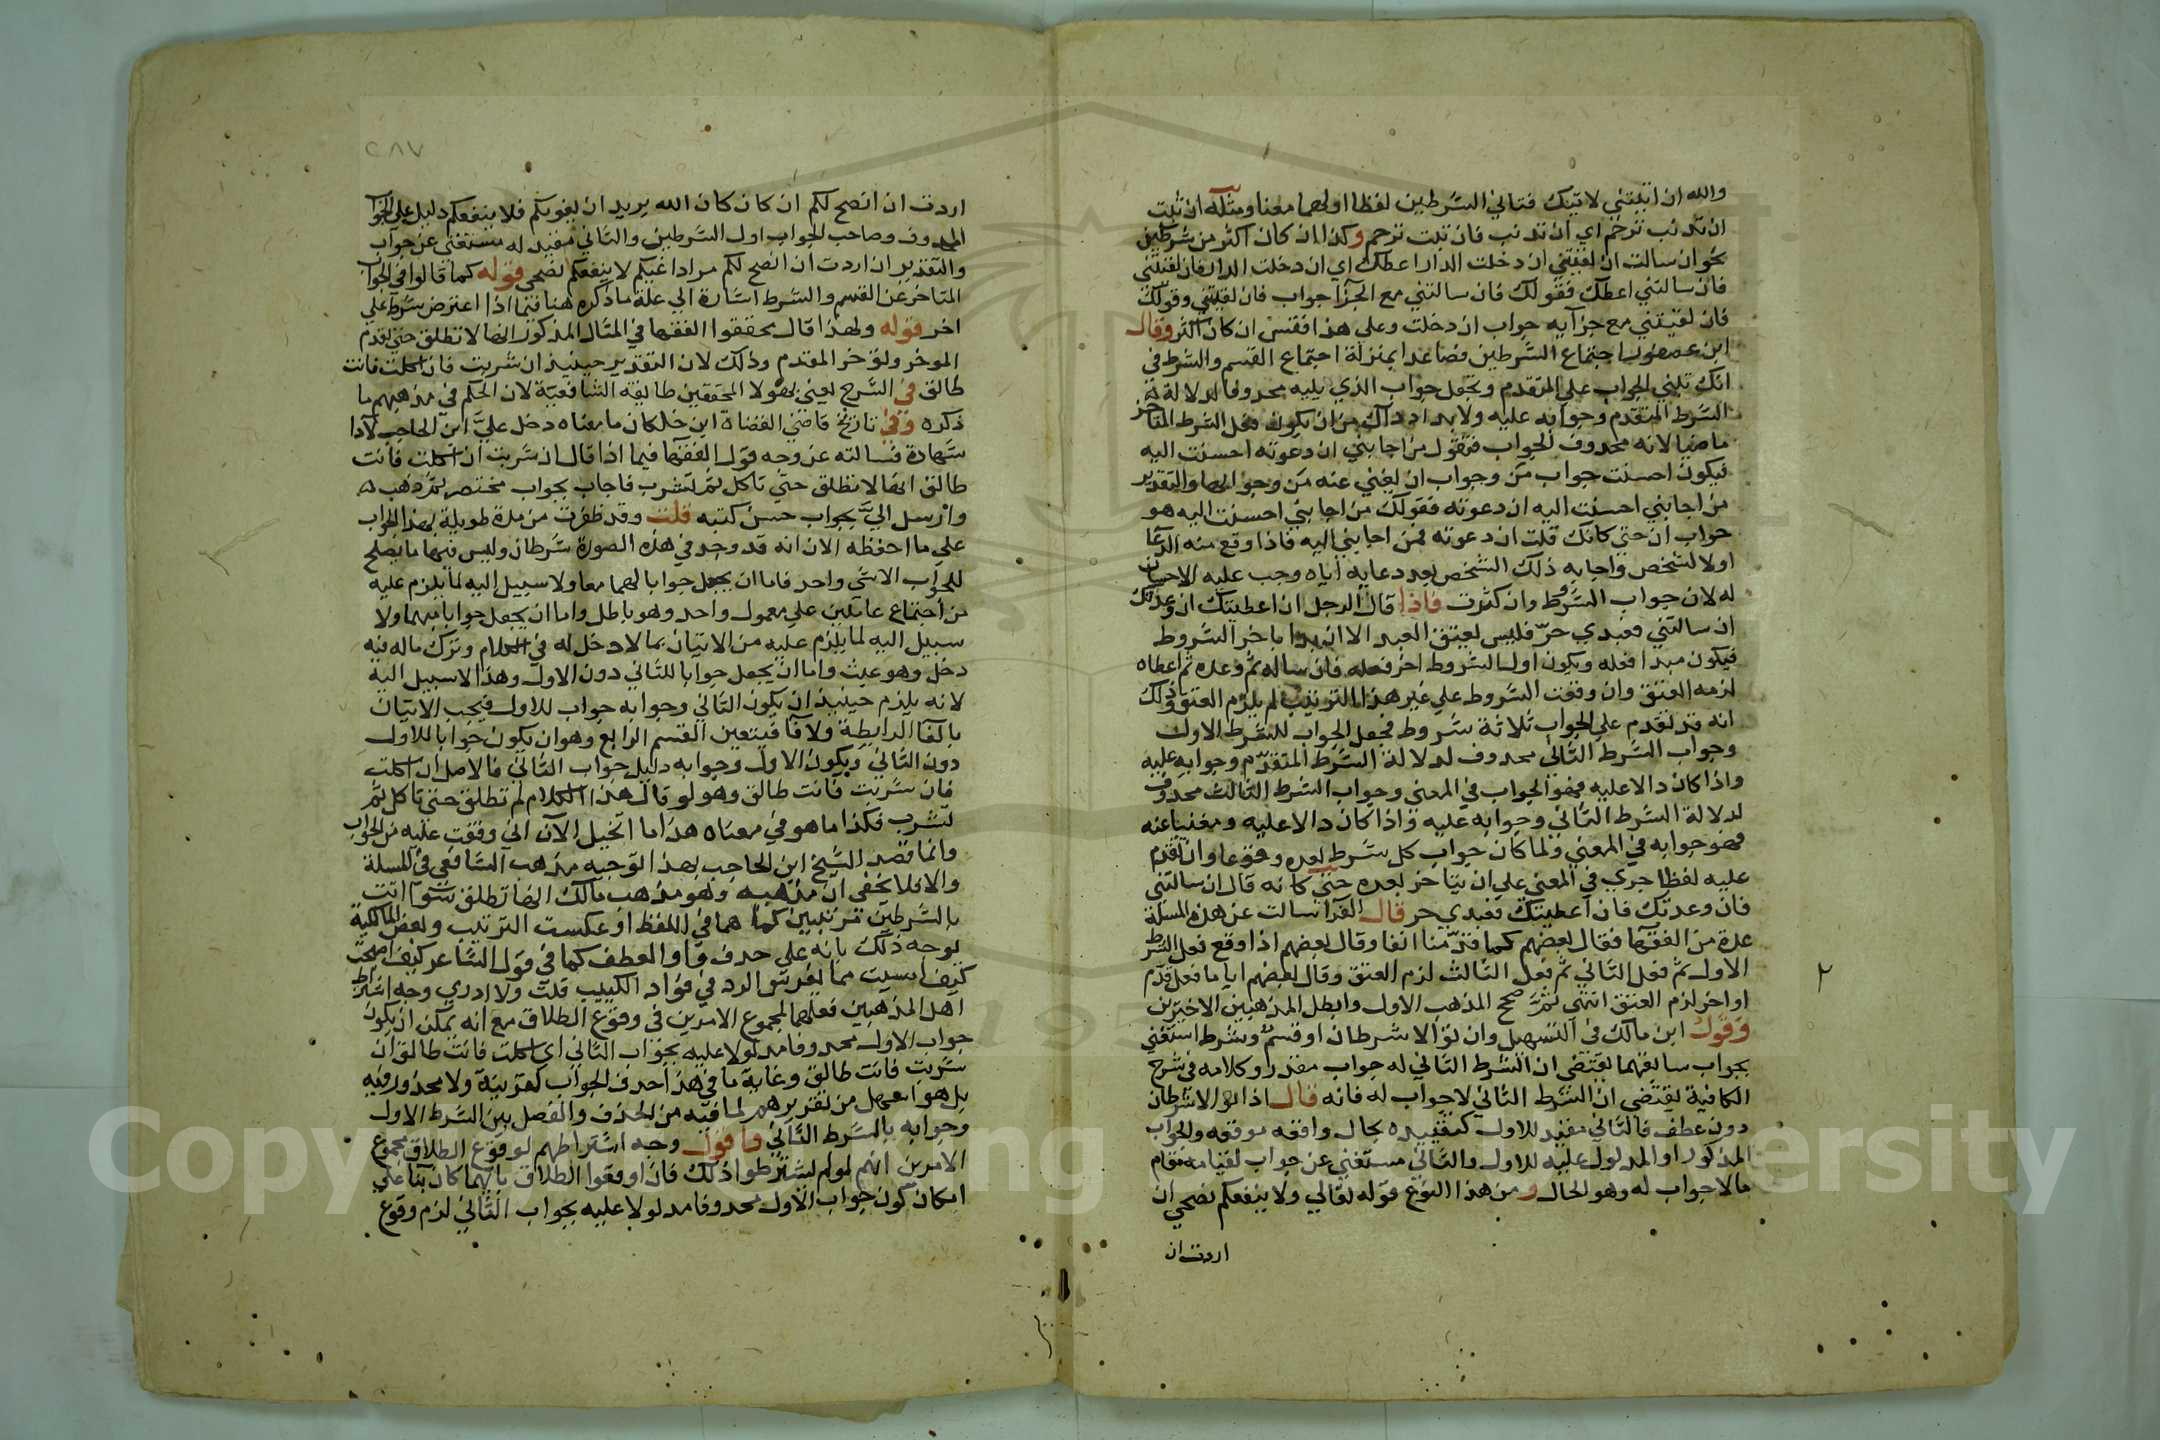 والله ان اتيتني لاتيتك فتاني الشرطين لفظا اولهما معنا ومثله ان تبت
ان تذنب ترحم اي ان تذنب فان تبت ترحم وكذا ان كان اكثر من شرطين
نحو ان سالت ان لقيتني ان دخلت الدار اعطك اي ان دخلت الدار فان لقيتني
فان سالتني اعطك فقولك فان سالتني مع الجزآ جواب فان لقيتني وقولك
فان لقيتني مع جزآيه جواب ان دخلت وعلي هذا فقس ان كان اكثر وقال
ابن عصفور اجتماع الشرطين فصاعدا بمنزلة اجتماع القسم والشرط في
انك تبني الجواب علي المتقدم وتجعل جواب الذي يليه محذوفا لدلالة
الشرط المتقدم وجوابه عليه ولا بد اذ ذاك من ان يكون فعل الشرط المتاخر
ماضيا لانه محذوف الجواب فتقول من اجابني ان دعوته احسنت اليه
فيكون احسنت جواب من وجواب ان يغني عنه من وجوابها والتقدير
من اجابني احسنت اليه ان دعوته فقولك من اجابني احسنت اليه هو
جواب ان حتي كانك قلت ان دعوته فمن اجابني اليه فاذا وقع منه الدعآ
اولا لشخص واجابه ذلك الشخص بعد دعايه اياه وجب عليه الاحسان
له لان جواب الشروط وان كثرت فاذا قال الرجل ان اعطيتك ان وعدتك
ان سالتني فعبدي حر فليس يعتق العبد الا ان بدا باخر الشروط
فيكون مبدا فعله ويكون اول الشروط اخر فعله فان ساله ثم وعده ثم اعطاه
لزمه العتق وان وقعت الشروط علي غير هذا الترتيب لم يلزم العتق وذلك
انه قد تقدم علي الجواب ثلاثة شروط فجعل الجواب للشرط الاول
وجواب الشرط الثاني محذوف لدلالة الشرط المتقدم وجوابه عليه
واذا كان دالا عليه فهو الجواب في المعني وجواب الشرط الثالث محذوف
لدلالة الشرط الثاني وجوابه عليه واذا كان دالا عليه ومغنيا عنه
فهو جوابه في المعني ولما كان جواب كل شرط بعده وقوعا وان تقدم
عليه لفظا جري في المعني علي ان يتاخر بعده حتي كانه قال ان سالتني
فان وعدتك فان اعطيتك فعبدي حر قال الفرآ سالت عن هذه المسلة
عدة من الفقهآ فقال بعضهم كما قدمنا انفا وقال بعضهم اذا وقع فعل الشرط
الاول ثم فعل الثاني ثم فعل الثالث لزم العتق وقال بعضهم ايا ما فعل قدم
او اخر لزم العتق انتهي ثم صحح المذهب الاول وابطل المذهبين الاخيرين
وقول ابن مالك في التسهيل وان توالا شرطان او قسم وشرط استغني
بجواب سابقهما يقتضي ان الشرط الثاني له جواب مقدر وكلامه في شرح
الكافية يقتضي ان الشرط الثاني لا جواب له فانه قال اذا توالا شرطان
دون عطف فالثاني مقيد للاول كتقييده بحال واقعه موقعه والجواب
المذكور او المدلول عليه للاول والثاني مستغني عن جواب لقيامه مقام
ما لا جواب له وهو الحال ومن هذا النوع قوله تعالي ولا ينفعكم نصحي ان
اردت ان
٢٨٧
اردت ان انصح لكم ان كان كان الله يريد ان يغويكم فلا ينفعكم دليل علي الجواب
المحذوف وصاحب الجواب اول الشرطين والثاني مقيد له مستغني عن جواب
والتقدير ان اردت ان انصح لكم مرادا غيكم لا ينفعكم نصحي قوله كما قالوا في الجواب
المتاخر عن القسم والشرط اشارة الي علة ما ذكره هنا فيما اذا اعترض شرط علي
اخر قوله ولهذا قال محققوا الفقها في المثال المذكور انها لا تطلق حتي يقدم
الموخر ويوخر المقدم وذلك لان التقدير حينيذ ان شربت فان اكلت فانت
طالق في الشرح يعني بهولا المحققين طايفة الشافعية لان الحكم في مذهبهم ما
ذكره وفي تاريخ قاضي القضاة ابن خلكان ما معناه دخل علي ابن الحاجب لادا
شهادة فسالته عن وجه قول الفقهآ فيما اذا قال ان شربت ان اكلت فانت
طالق انها لا تطلق حتي تاكل ثم تشرب فاجاب بجواب مختصر ثم ذهب
وارسل الي بجواب حسن كتبه قلت وقد ظفرت من مدة طويلة بهذا الجواب
علي ما احفظه الان انه قد وجد في هذه الصورة شرطان وليس فيهما ما يصلح
للجواب الا شي واحد فاما ان يجعل جوابا لهما معا ولا سبيل اليه لما يلزم عليه
من اجتماع عاملين علي معمول واحد وهو باطل واما ان يجعل جوابا منهما ولا
سبيل اليه لما يلزم عليه من الاتيان بما لا دخل له في الكلام وترك ما له فيه
دخل وهو عبث واما ان يجعل جوابا للثاني دون الاول وهذا لا سبيل اليه
لانه يلزم حينيذ ان يكون الثاني وجوابه جواب للاول فيجب الاتيان
بالفآ الرابطة ولا فآ فيتعين القسم الرابع وهو ان يكون جوابا للاول
دون الثاني ويكون الاول وجوابه دليل جواب الثاني فالاصل ان اكلت
فان شربت فانت طالق وهو لو قال هذا الكلام لم تطلق حتي تاكل ثم
تشرب فكذا ما هو في معناه هذا ما اتخيل الآن اني وقفت عليه من الجواب
وانما قصد الشيخ ابن الحاجب بهذا التوجيه مذهب الشافعي في المسلة
والا فلا يخفي ان مذهبه وهو مذهب مالك انها تطلق سوآ اتت
بالشرطين مرتبين كما هما في اللفظ او عكست الترتيب وبعض المالكية
توجه ذلك بانه علي حذف واو العطف كما في قول الشاعر كيف اصبحت
كيف امسيت مما يغرس الود في فؤاد الكييب قلت ولا ادري وجه اشتراط
اهل المذهبين فعلهما لمجموع الامرين في وقوع الطلاق مع انه يمكن ان يكون
جواب الاول محذوفا مدلولا عليه بجواب الثاني اي اكلت فانت طالق ان
شربت فانت طالق وغاية ما في هذا حذف الجواب لقرينة ولا محذور فيه
بل هو اسهل من تقريرهم لما فيه من الحذف والفصل بين الشرط الاول
وجوابه بالشرط الثاني فاقول وجه اشتراطهم لوقوع الطلاق مجموع
الامرين انهم لو لم يشترطوا ذلك فان اوقعوا الطلاق بايهما كان بنآ علي
امكان كون جواب الاول محذوفا مدلولا عليه بجواب الثاني لزم وقوع